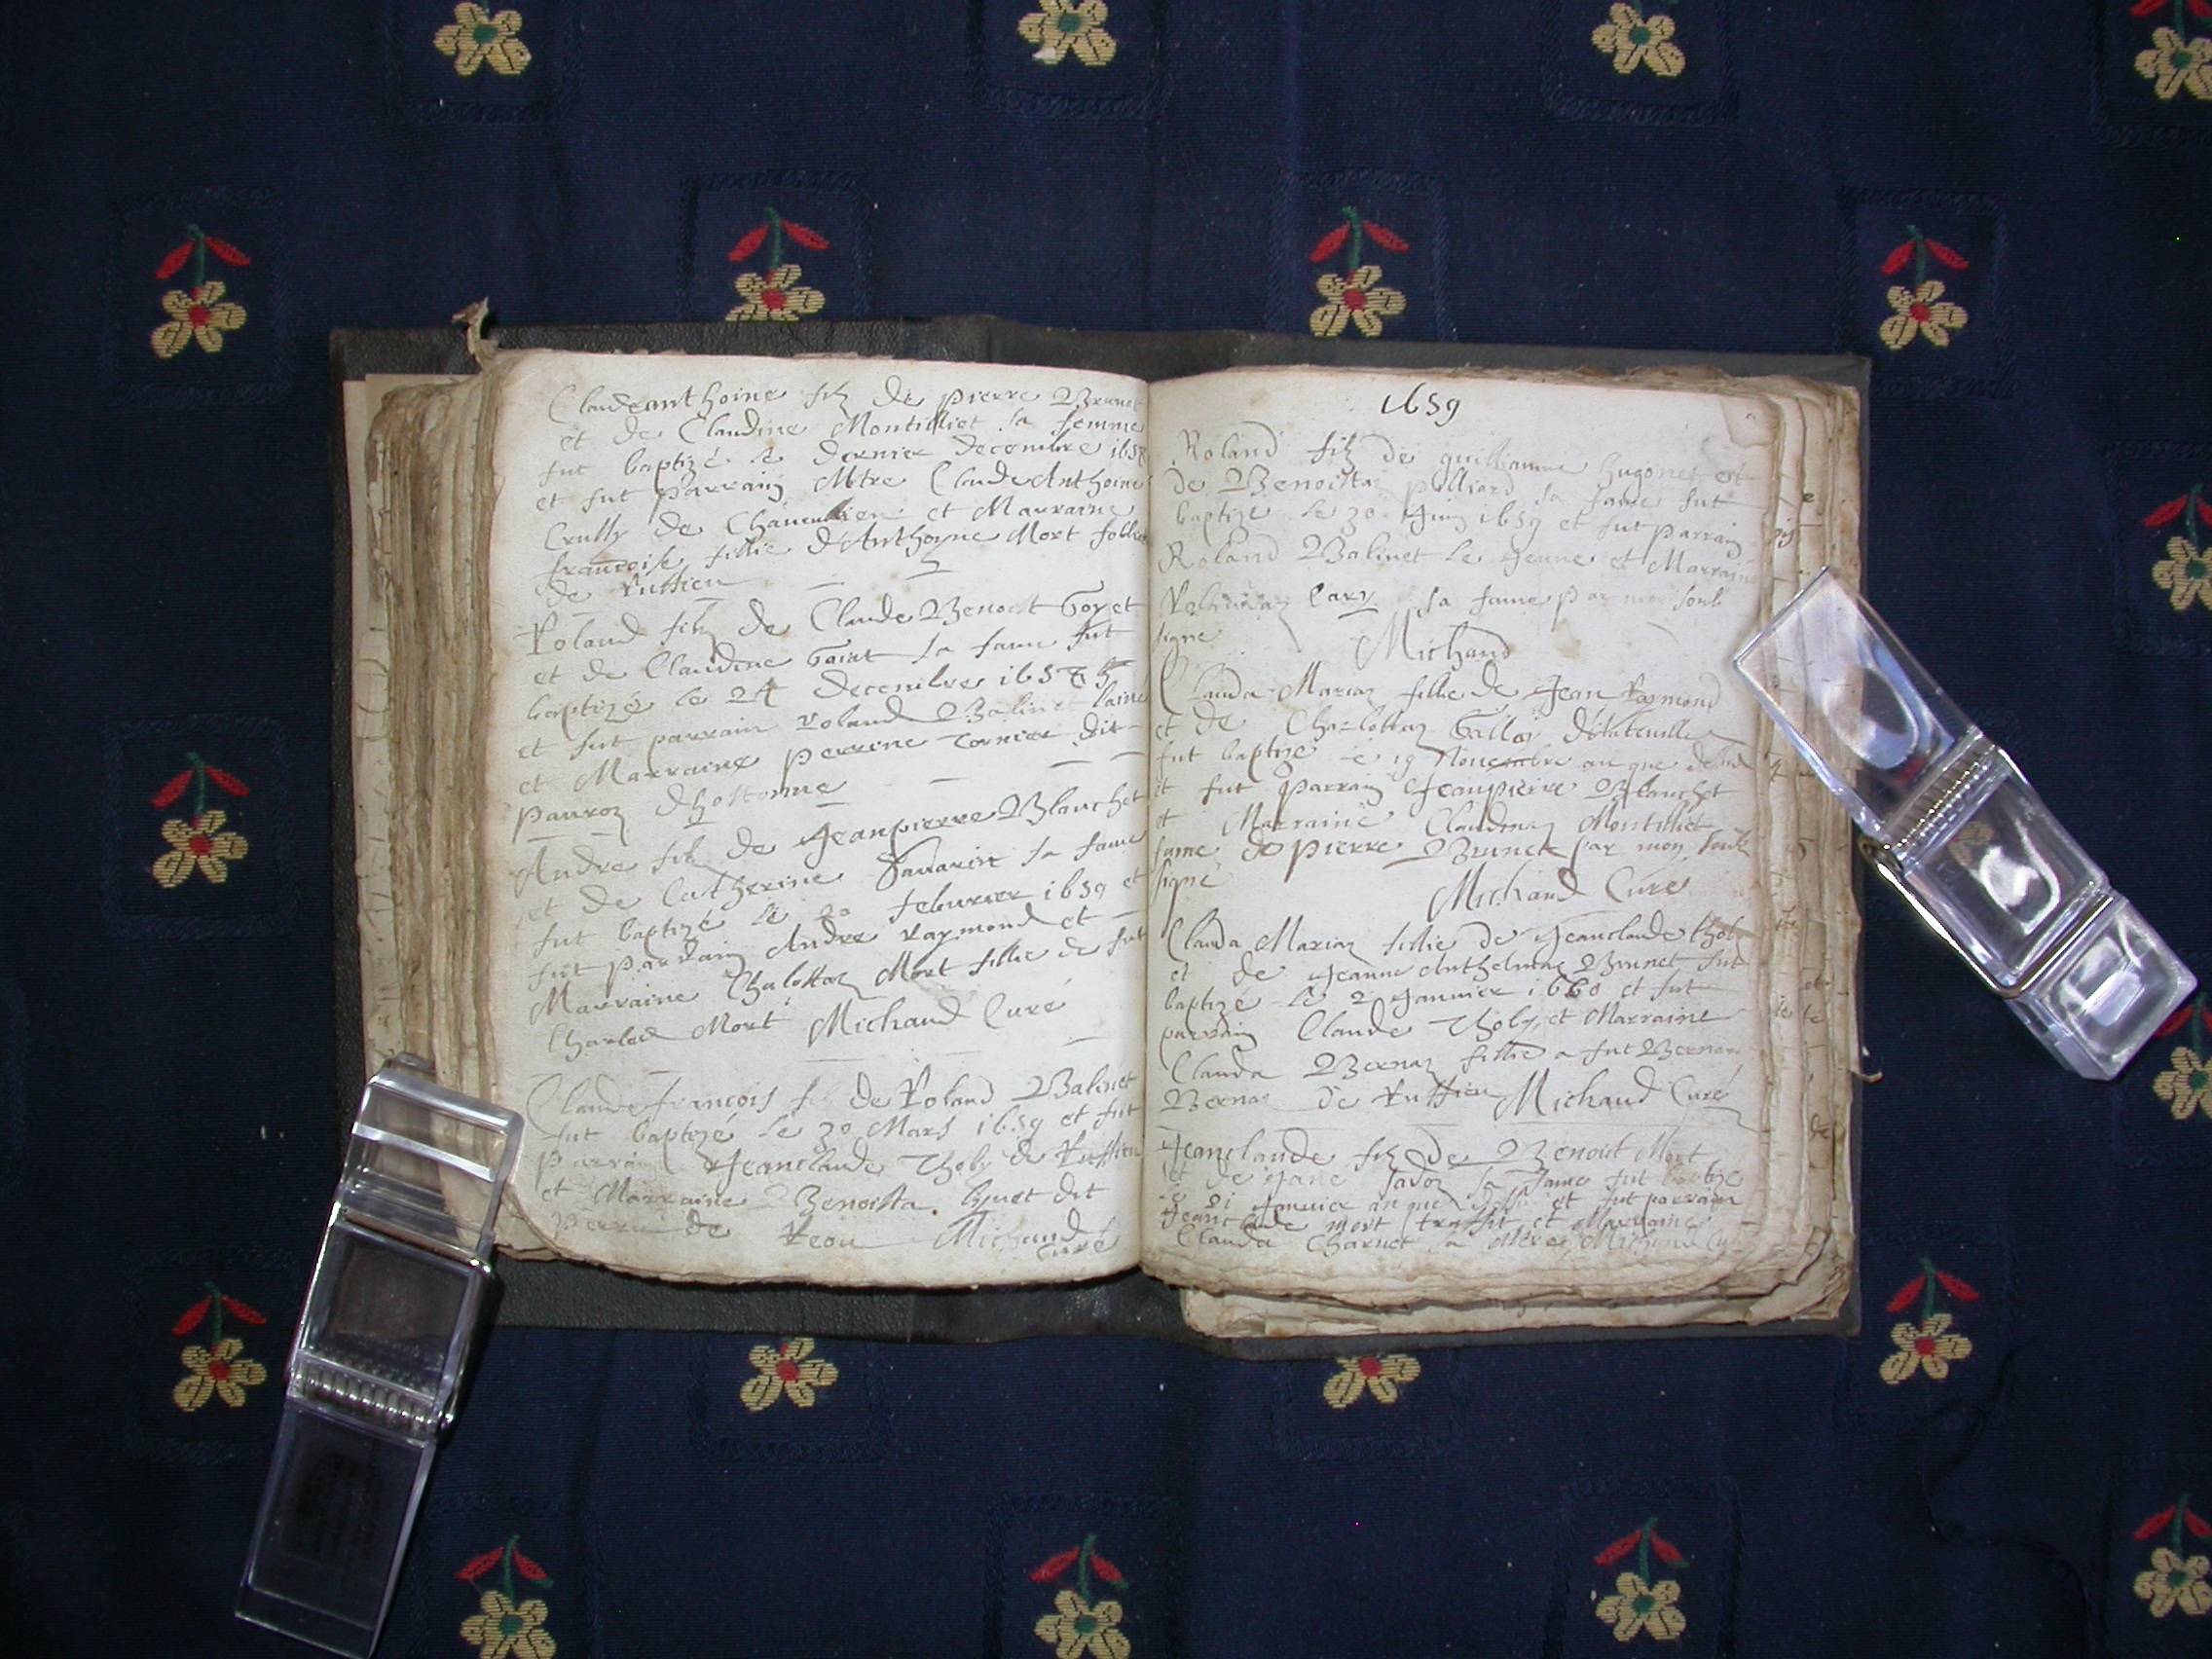 Claudeanthoine filz de pierre Brunet
et de Claudine Montilliet sa femme
fut baptizé le dernier decembre 1658
et fut parrain Mtre Claude Anthoine
Crully de et Marraine
francoise fillie d'Anthoine Mort follie
de Ruffieu
Roland filz de Claude Benoit Goyet
et de Claudine sa fame fut
baptizé le 24 decembre
et fut parrain Roland Balinet lainé
et Marraine perrine Cornier dit
pauroz dhostonne
Andre filz de Jeanpierre Blanchet
et de Catherine Sauarin sa fame
fut baptizé le 20 februrier 1659 et
fut parrain Andre Raymond et
Marraine Chalottaz Mort fillie de fut
Charles Mort Michaud Curé
Claude francois filz de Roland Balinet
fut baptizé le 30 Mars 1659 et fut
parrain Jeanclaude Thoby de Ruffieu
et Marraine Benoista dit
de Michaud
Curé
1659
Roland filz de guilliaume hugonet et
de Benoista pilliard sa fame fut
baptizé le 30 Juin 1659 et fut parrain
Roland Balinet le Jeune et Marraine
Cary sa fame par moi soub
signe Michaud
Clauda Mariaz fillie de Jean Raymond
et de Charlottaz Galloi
fut baptize le 19 Nouembre an que dessus
et fut parrain Jeanpierre Blanchet
et Marraine Claudinaz Montilliet
fame de pierre Brunet par moy soub
signé
Michaud Curé
Clauda Mariaz fillie de Jeanclaude Thoby
et de Jeanne Anthelmaz Brunet fut
baptizé le 2 Januier 1660 et fut
parrain Claude Thoby et Marraine
Clauda Bernaz fillie a fut Bernard
Bernaz de Ruffieu Michaud Curé
Jeanclaude filz de Benoit Mort
et de Jane Sauoy sa fame fut baptize
le 21 Januier an que dessus et fut parrain
Jeanclaude mort et Marraine
Clauda Charuet sa Mere Michaud Cu